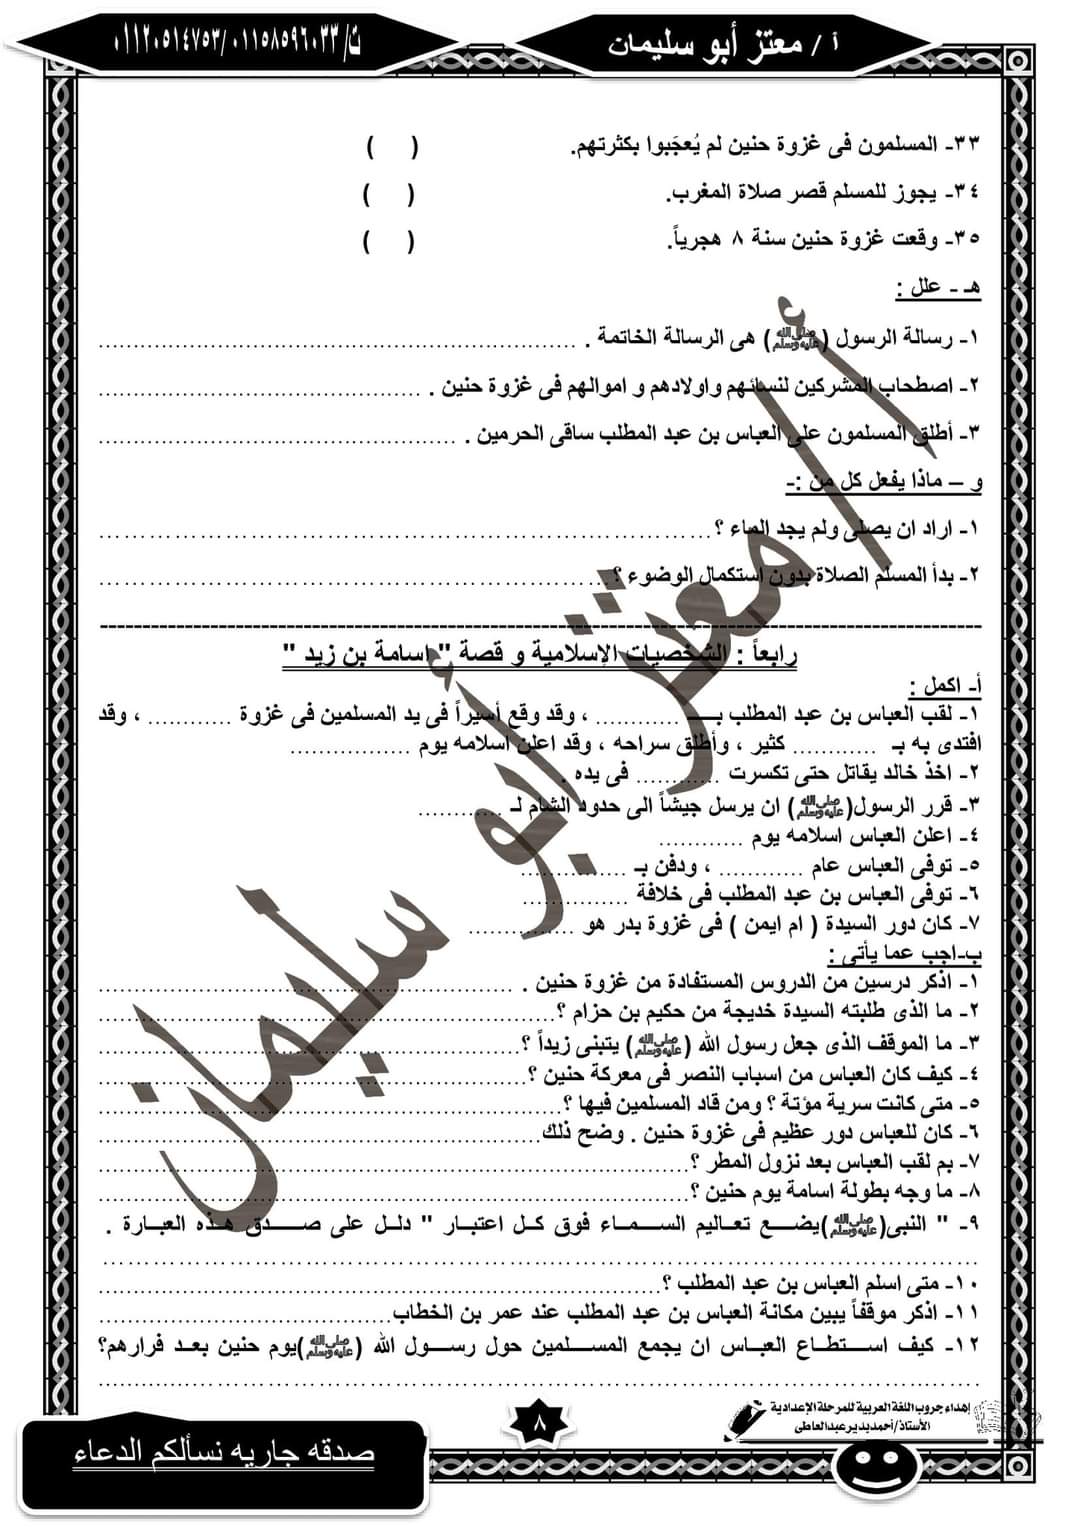 أ / معتز أبو سليمان
ت/ ٠١١٥٨٥٩٦٠٣٣ /٠١١٢٠٥١٤٧٥٣
٣٣- المسلمون فى غزوة حنين لم يُعجَبوا بكثرتهم. ( )
٣٤- يجوز للمسلم قصر صلاة المغرب. ( )
٣٥- وقعت غزوة حنين سنة ٨ هجرياً. ( )
هـ - علل :
١- رسالة الرسول (ﷺ) هى الرسالة الخاتمة . ............
٢- اصطحاب المشركين لنسائهم واولادهم و اموالهم فى غزوة حنين . ............
٣- أطلق المسلمون على العباس بن عبد المطلب ساقى الحرمين . ............
و – ماذا يفعل كل من :-
١- اراد ان يصلى ولم يجد الماء ؟ ............
٢- بدأ المسلم الصلاة بدون استكمال الوضوء ؟ ............
رابعاً : الشخصيات الإسلامية و قصة " اسامة بن زيد "
أ- اكمل :
١- لقب العباس بن عبد المطلب بـــ ............ ، وقد وقع أسيراً فى يد المسلمين فى غزوة ............ ، وقد
افتدى به بـ ............ كثير ، وأطلق سراحه ، وقد اعلن اسلامه يوم ............
٢- اخذ خالد يقاتل حتى تكسرت ............ فى يده .
٣- قرر الرسول(ﷺ) ان يرسل جيشاً الى حدود الشام لـ ............
٤- اعلن العباس اسلامه يوم ............
٥- توفى العباس عام ............ ، ودفن بـ ............
٦- توفى العباس بن عبد المطلب فى خلافة ............
٧- كان دور السيدة ( ام ايمن ) فى غزوة بدر هو ............
ب-اجب عما يأتى :
١- اذكر درسين من الدروس المستفادة من غزوة حنين . ............
٢- ما الذى طلبته السيدة خديجة من حكيم بن حزام ؟ ............
٣- ما الموقف الذى جعل رسول الله (ﷺ) يتبنى زيداً ؟ ............
٤- كيف كان العباس من اسباب النصر فى معركة حنين ؟ ............
٥- متى كانت سرية مؤتة ؟ ومن قاد المسلمين فيها ؟ ............
٦- كان للعباس دور عظيم فى غزوة حنين . وضح ذلك ............
٧- بم لقب العباس بعد نزول المطر ؟ ............
٨- ما وجه بطولة اسامة يوم حنين ؟ ............
٩- " النبى(ﷺ)يضع تعاليم السماء فوق كل اعتبار " دلل على صدق هذه العبارة .
............
١٠- متى اسلم العباس بن عبد المطلب ؟ ............
١١- اذكر موقفاً يبين مكانة العباس بن عبد المطلب عند عمر بن الخطاب ............
١٢- كيف استطاع العباس ان يجمع المسلمين حول رسول الله (ﷺ)يوم حنين بعد فرارهم؟
............
أ / معتز أبو سليمان
إهداء جروب اللغة العربية للمرحلة الإعدادية
الأستاذ/أحمد بدير عبد العاطى
٨
صدقه جاريه نسألكم الدعاء